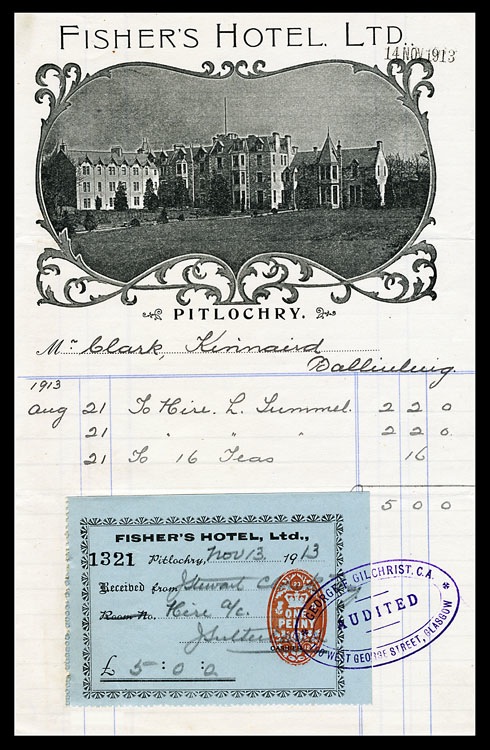 FISHER'S HOTEL, LTD.
14 NOV 1913
PITLOCHRY.
Mr Clark, Kinnaird
Ballinluig.
1913
Aug 21 To Hire. L. Tummel. 2 2 0
21 " " " 2 2 0
21 To 16 Teas 16
5 0 0
FISHER'S HOTEL, Ltd.,
1321 Pitlochry, Nov 13. 1913
Received from J Stewart
Room No. Hire a/c.
£ 5 : 0 : 0
ONE PENNY
GEORGE GILCHRIST, C.A.
AUDITED
WEST GEORGE STREET, GLASGOW